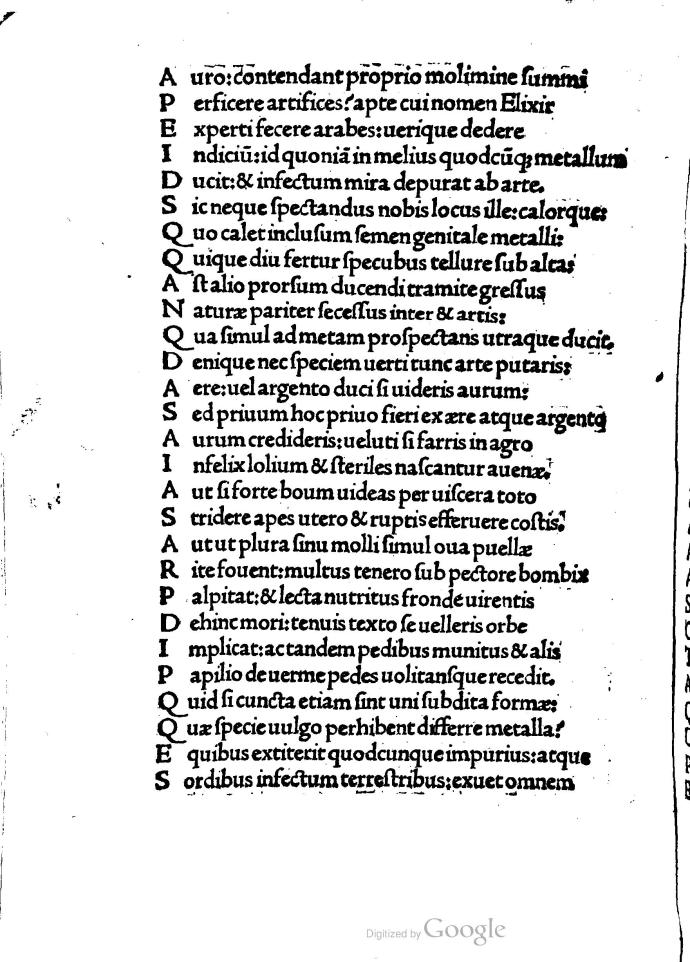 A uro: contendant proprio molimine ſummi
P erficere artifices? apte cui nomen Elixir
E xperti fecere arabes: uerique dedere
I ndiciū: id quoniā in melius quodcūq; metallum
D ucit: & infectum mira depurat ab arte.
S ic neque ſpectandus nobis locus ille: calorque:
Q uo calet incluſum ſemen genitale metalli:
Q uique diu fertur ſpecubus tellure ſub altas
A ſt alio prorſum ducendi tramite greſſus
N aturæ pariter ſeceſſus inter & artis:
Q ua ſimul ad metam proſpectans utraque ducit.
D enique nec ſpeciem uerti tunc arte putaris:
A ere: uel argento duci ſi uideris aurum:
S ed priuum hoc priuo fieri ex ære atque argento
A urum credideris: ueluti ſi farris in agro
I nfelix lolium & ſteriles naſcantur auenæ?
A ut ſi forte boum uideas per uiſcera toto
S tridere apes utero & ruptis efferuere coſtis?
A ut ut plura ſinu molli ſimul oua puellæ
R ite fouent: multus tenero ſub pectore bombix
P alpitat: & lecta nutritus fronde uirentis
D ehinc mori: tenuis texto ſe uelleris orbe
I mplicat: ac tandem pedibus munitus & alis
P apilio de uerme pedes uolitanſque recedit.
Q uid ſi cuncta etiam ſint uni ſubdita formæ:
Q uæ ſpecie uulgo perhibent differre metalla?
E quibus extiterit quodcunque impurius: atque
S ordibus infectum terreſtribus: exuet omnem
Digitized by Google